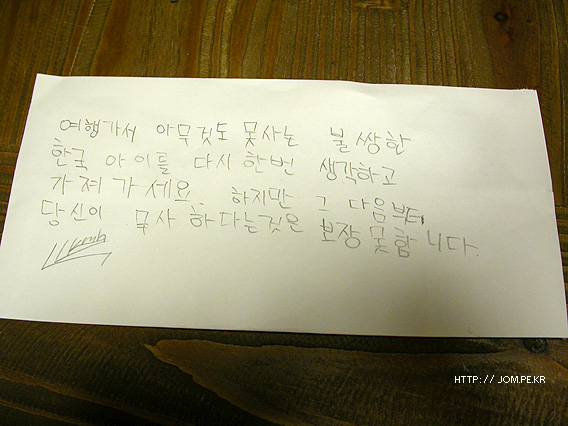 여행가서 아무것도 못사는 불쌍한
한국 아이를 다시한번 생각하고
가져가세요. 하지만 그 다음부터
당신이 무사 하다는것은 보장못합니다.
HTTP://JOM.PE.KR